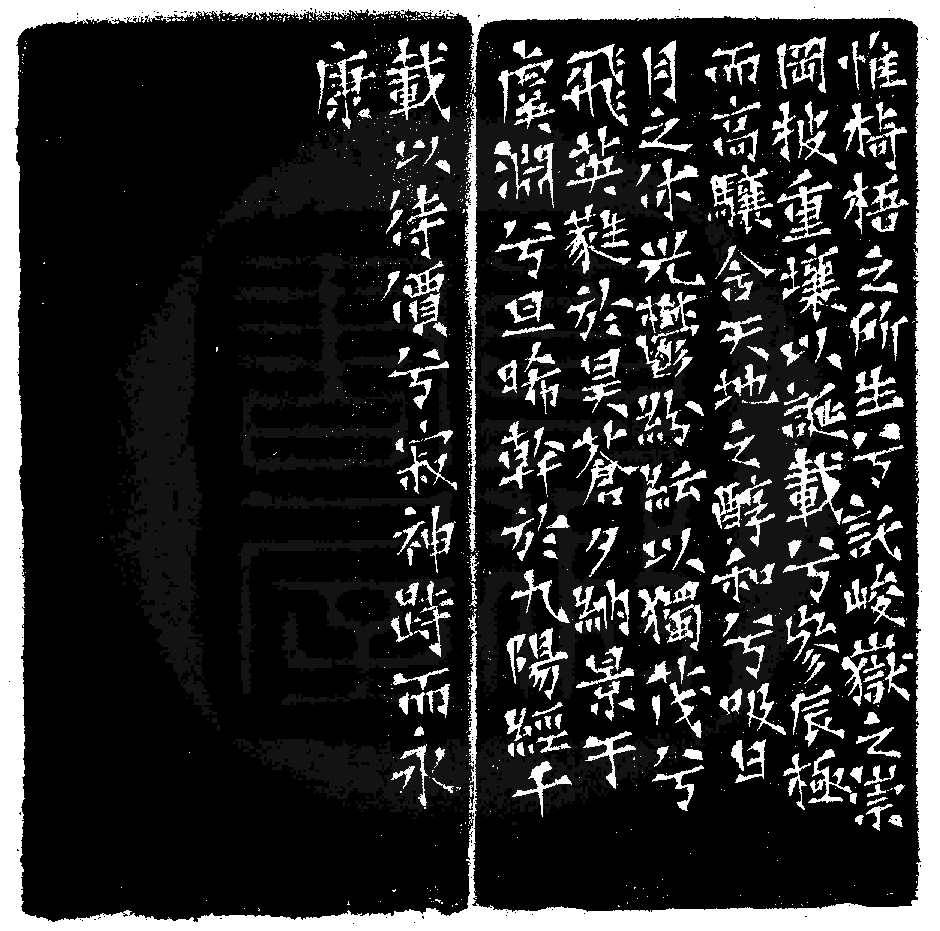 惟椅梧之所生兮託峻嶽之崇
岡披重壤以誕載兮參辰極
而高驤含天地之醇和兮吸日
月之休光鬱紛紜以獨茂兮
飛英蕤於昊蒼夕納景于
虞淵兮旦晞幹於九陽經千
載以待價兮寂神跱而永
康